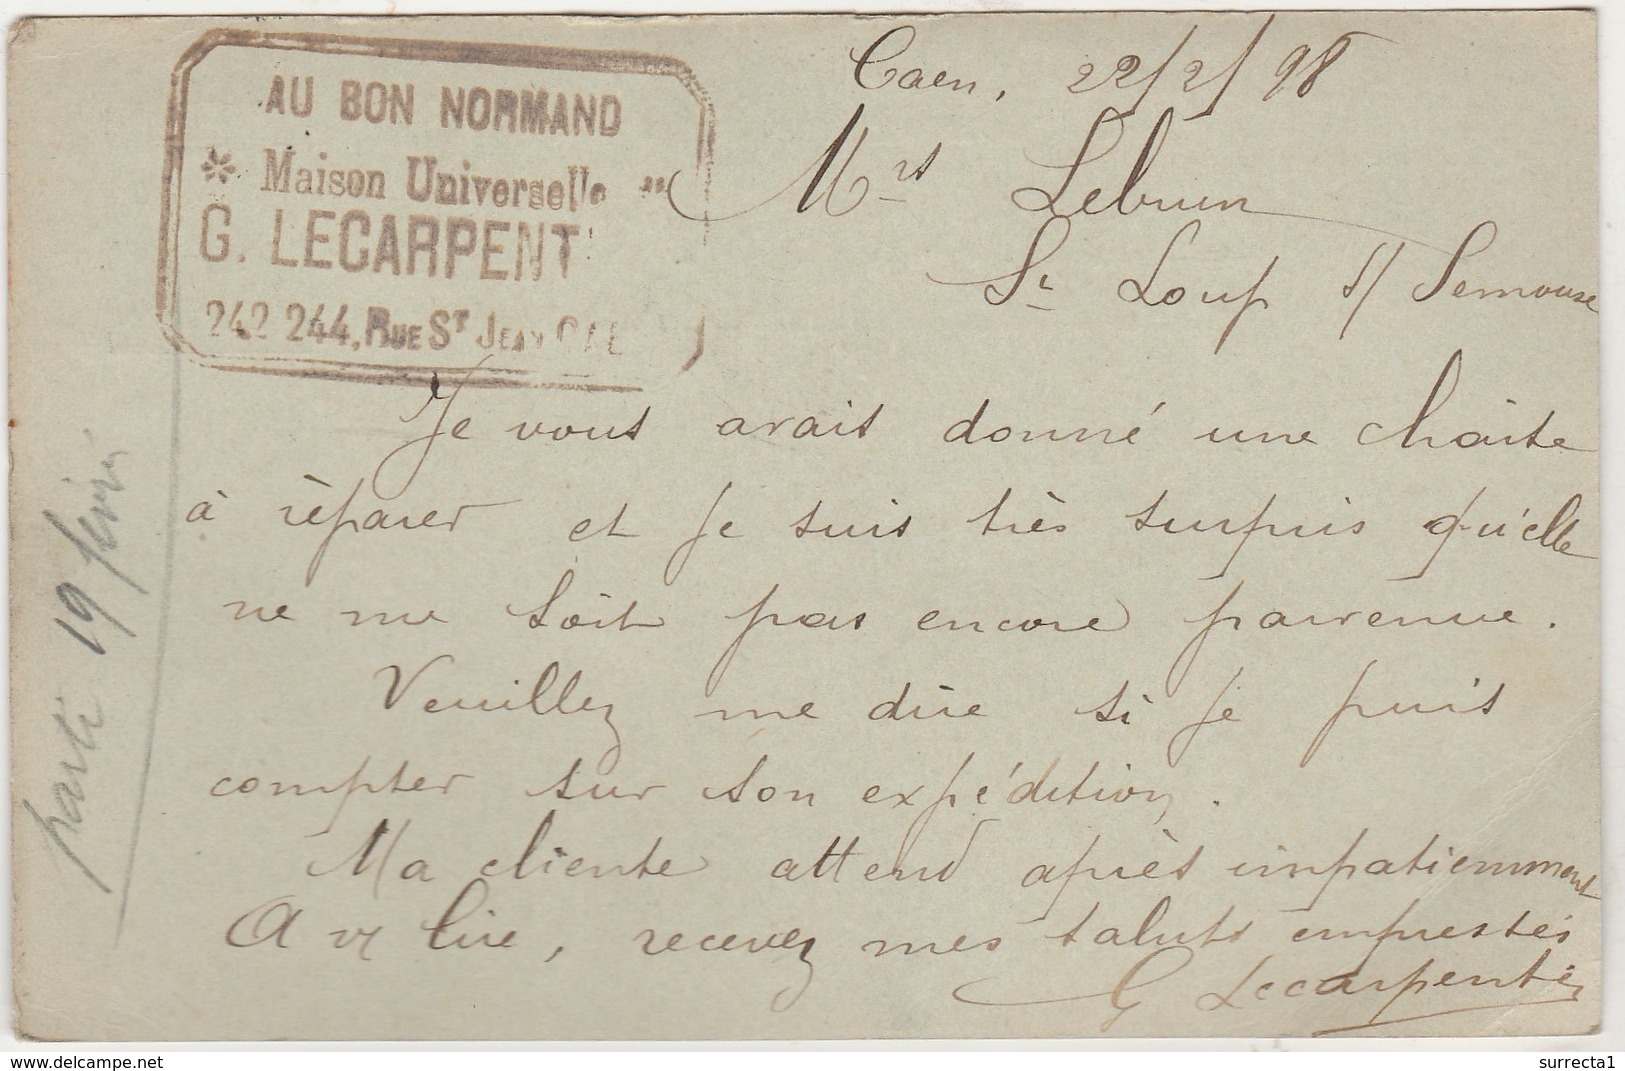 AU BON NORMAND
Maison Universelle
G. LECARPENT
242 244, RUE ST JEAN CAE
Caen, 22/2/98
Mrs Lebrun
St Loup s/ Semouse
Je vous avais donné une chaise
à réparer et je suis très surpris qu'elle
ne me soit pas encore parvenue.
Veuillez me dire si je puis
compter sur son expédition.
Ma cliente attend après impatiemment
A vs lire, recevez mes saluts empressés
G Lecarpentier
parti 19 février
www.delcampe.net
surrecta1